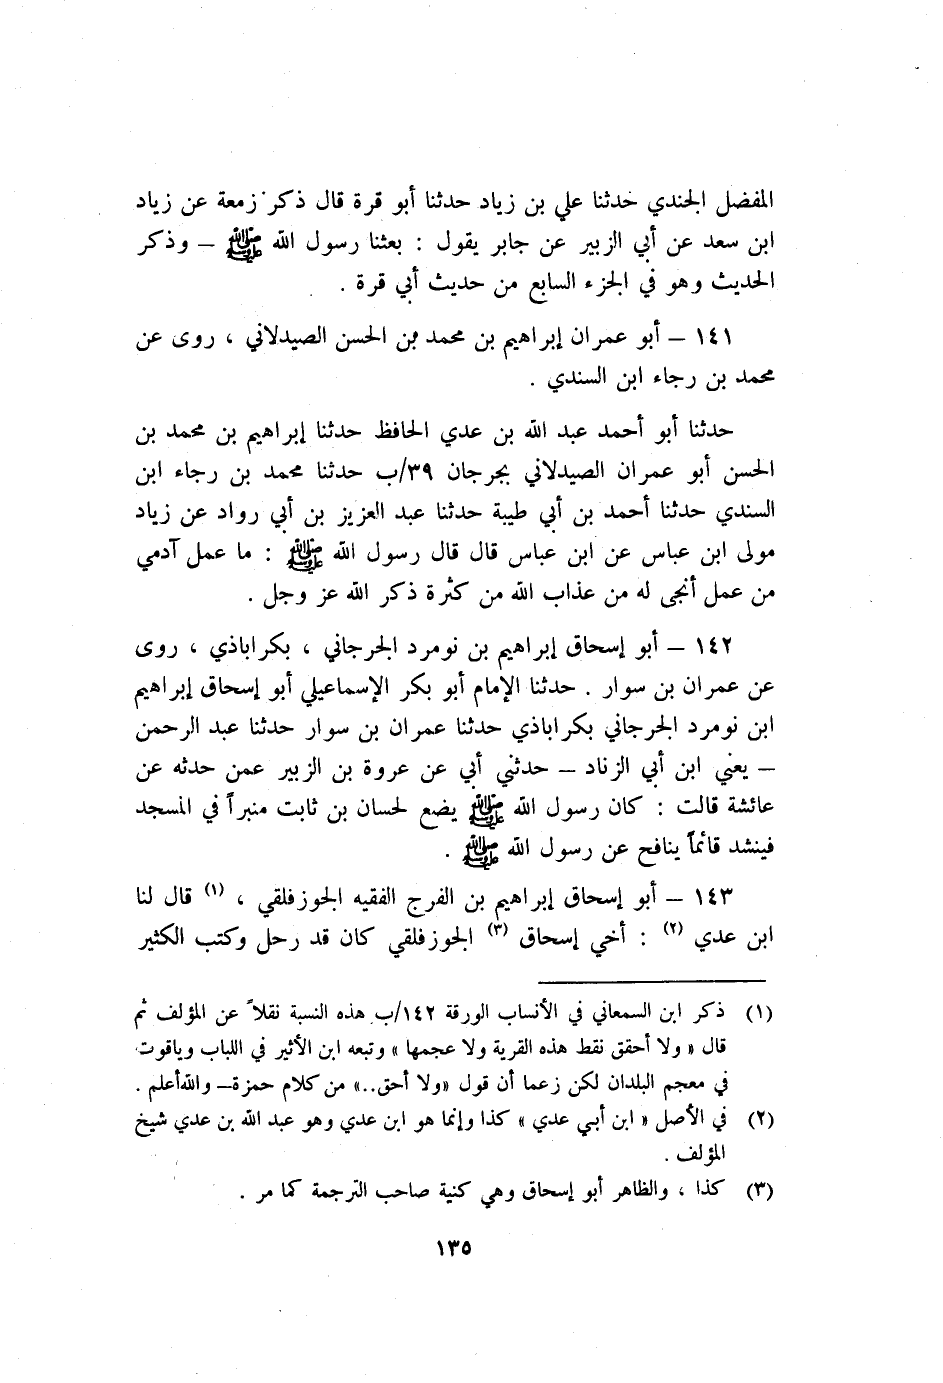 المفضل الجندي حدثنا علي بن زياد حدثنا أبو قرة قال ذكر زمعة عن زياد
ابن سعد عن أبي الزبير عن جابر يقول : بعثنا رسول الله ﷺ – وذكر
الحديث وهو في الجزء السابع من حديث أبي قرة .
١٤١ – أبو عمران إبراهيم بن محمد بن الحسن الصيدلاني ، روى عن
محمد بن رجاء ابن السندي .
حدثنا أبو أحمد عبد الله بن عدي الحافظ حدثنا إبراهيم بن محمد بن
الحسن أبو عمران الصيدلاني بجرجان ٣٩/ب حدثنا محمد بن رجاء ابن
السندي حدثنا أحمد بن أبي طيبة حدثنا عبد العزيز بن أبي رواد عن زياد
مولى ابن عباس عن ابن عباس قال قال رسول الله ﷺ : ما عمل آدمي
من عمل أنجى له من عذاب الله من كثرة ذكر الله عز وجل .
١٤٢ – أبو إسحاق إبراهيم بن نومرد الجرجاني ، بكراباذي ، روى
عن عمران بن سوار . حدثنا الإمام أبو بكر الإسماعيلي أبو إسحاق إبراهيم
ابن نومرد الجرجاني بكراباذي حدثنا عمران بن سوار حدثنا عبد الرحمن
– يعني ابن أبي الزناد – حدثني أبي عن عروة بن الزبير عمن حدثه عن
عائشة قالت : كان رسول الله ﷺ يضع لحسان بن ثابت منبراً في المسجد
فينشد قائماً ينافح عن رسول الله ﷺ .
١٤٣ – أبو إسحاق إبراهيم بن الفرج الفقيه الجوزفلقي ، (١) قال لنا
ابن عدي (٢) : أخي إسحاق (٣) الجوزفلقي كان قد رحل وكتب الكثير
(١) ذكر ابن السمعاني في الأنساب الورقة ١٤٢/ب هذه النسبة نقلاً عن المؤلف ثم
قال « ولا أحقق نقط هذه القرية ولا عجمها » وتبعه ابن الأثير في اللباب وياقوت
في معجم البلدان لكن زعما أن قول «ولا أحق..» من كلام حمزة– والله أعلم .
(٢) في الأصل « ابن أبي عدي » كذا وإنما هو ابن عدي وهو عبد الله بن عدي شيخ
المؤلف .
(٣) كذا ، والظاهر أبو إسحاق وهي كنية صاحب الترجمة كما مر .
١٣٥